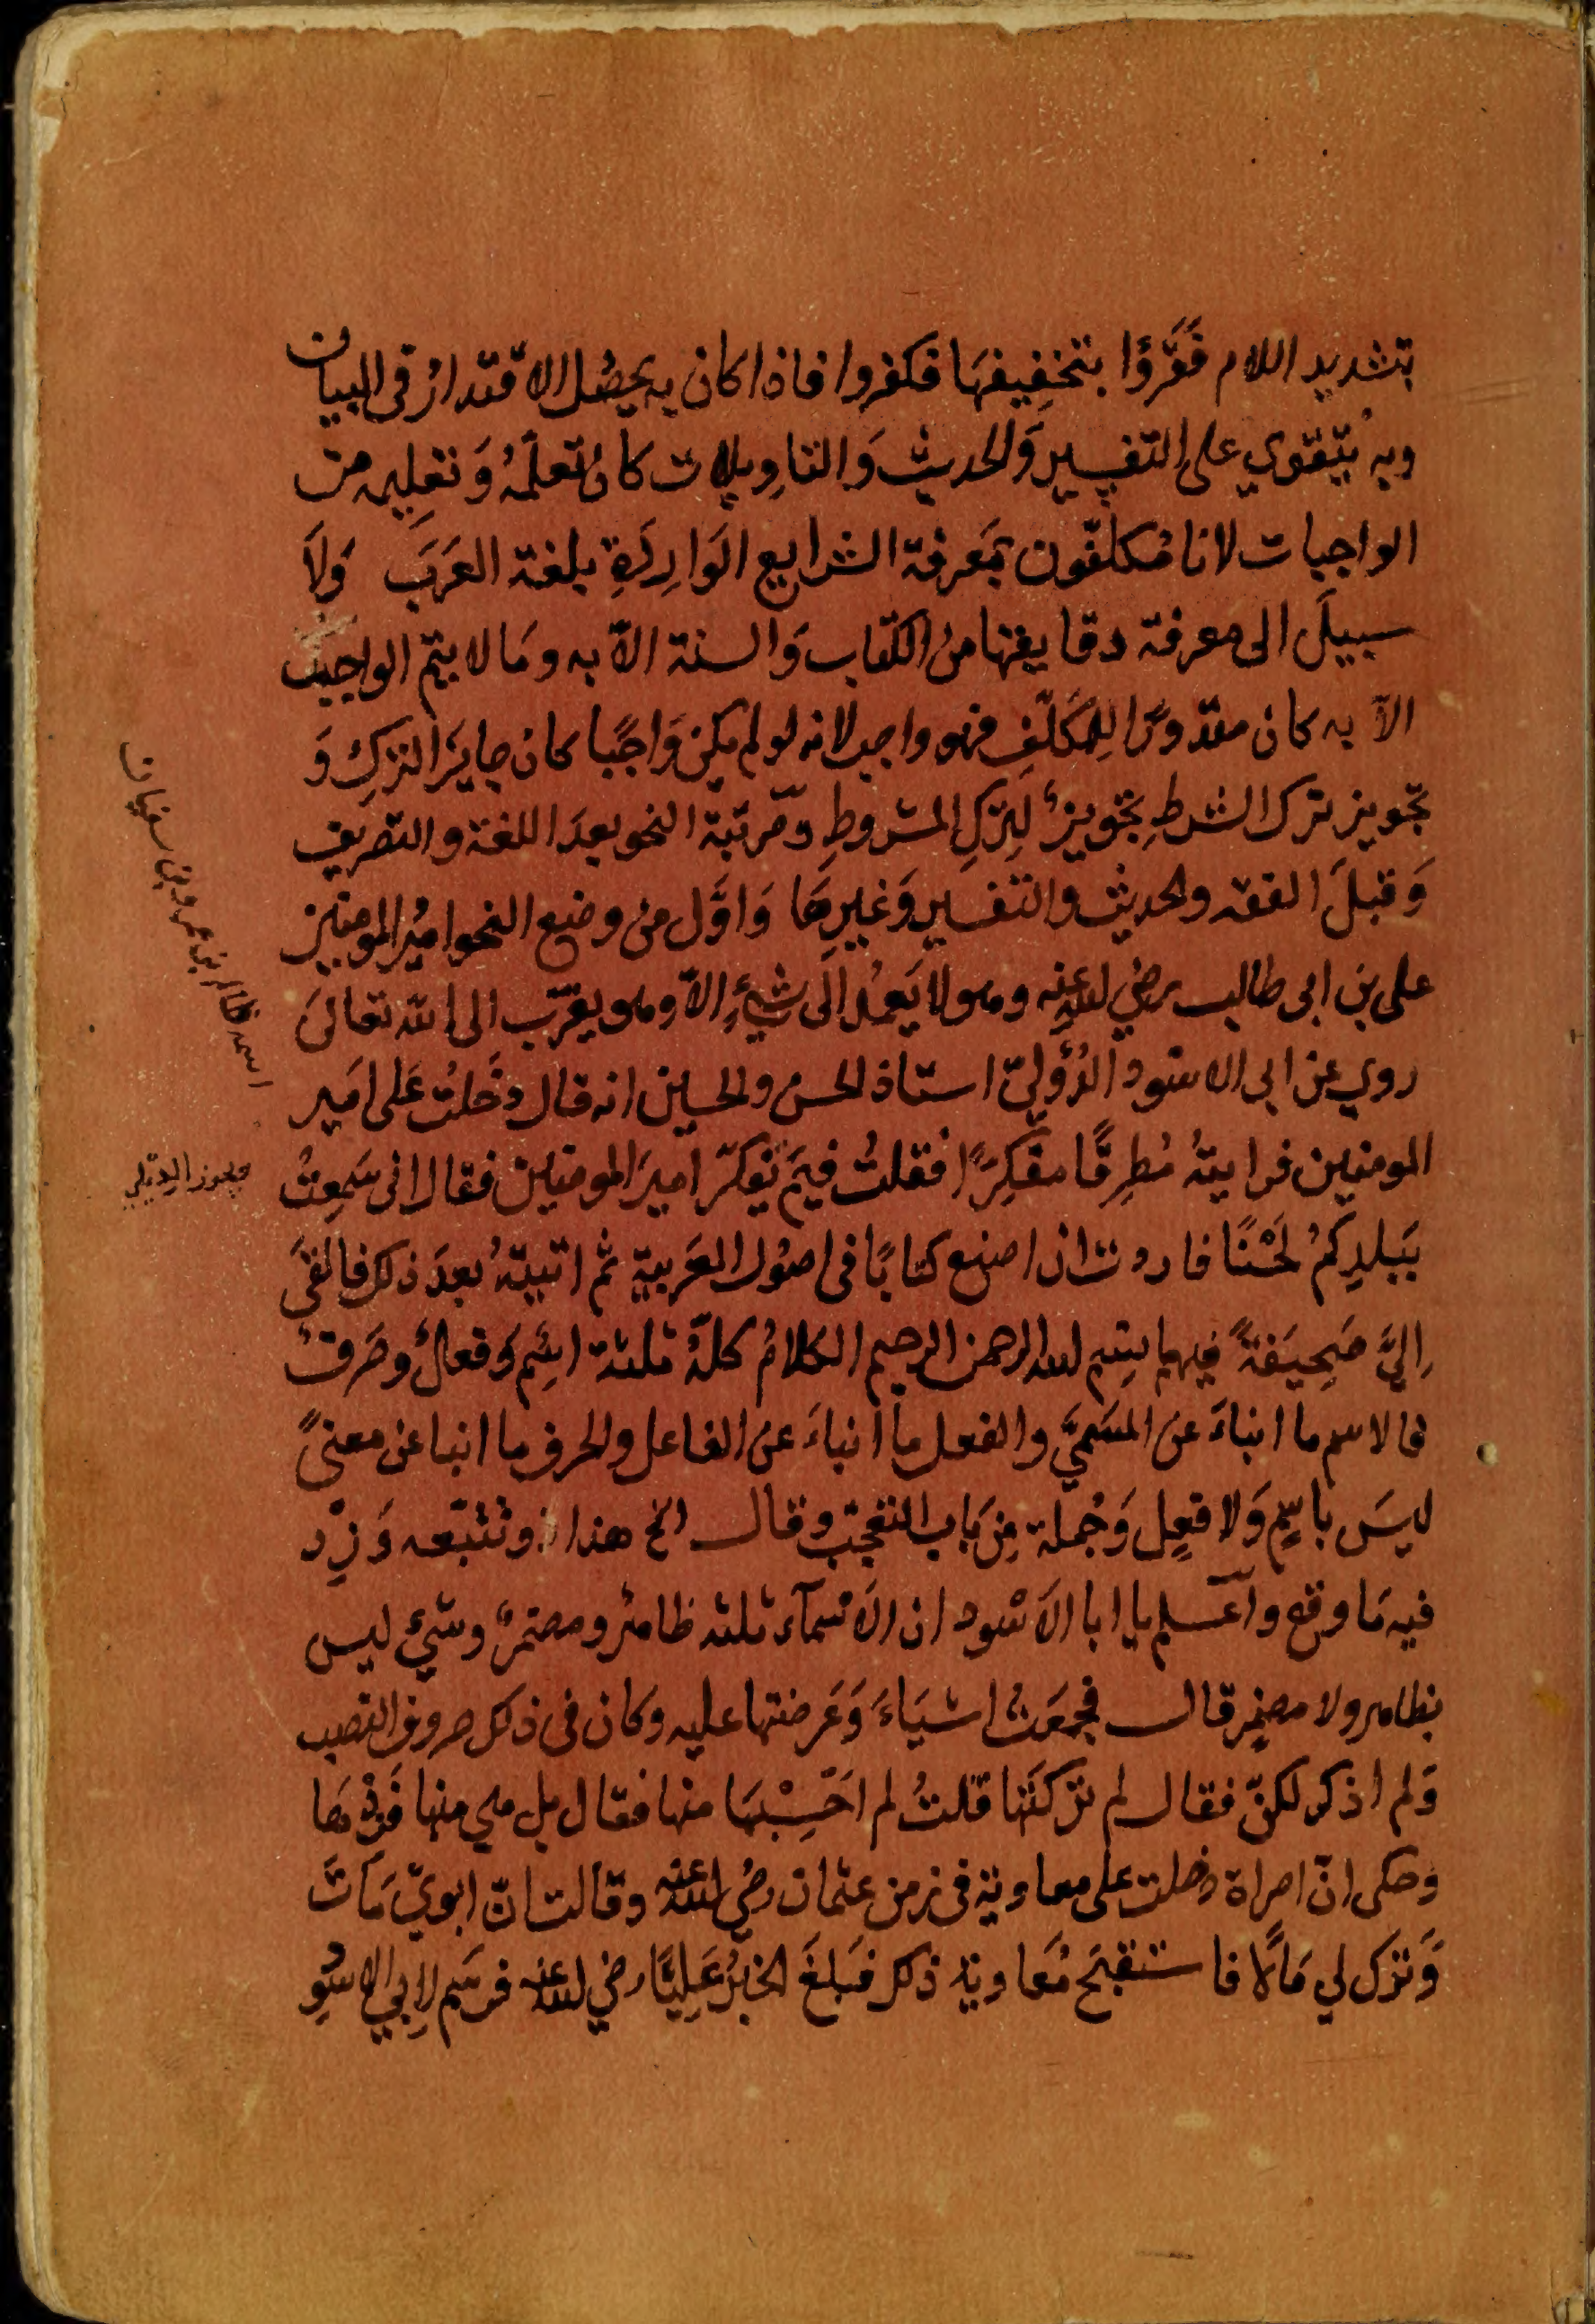 بتشديد اللام فَقَرَؤا بتخفِيفِهَا فكفروا فاذا كان به يحصُل الاقتدارُ فى البيان
وبه يُتقَوي على التفسِيرِ وَالحديثِ وَالتاوِيلات كان تعلّمُهُ وَتعلِيمه من
الواجبات لانا مُكلّفون بمَعرفة الشرايع الوَارِدَةِ بلغة العَرَبَ وَلاَ
سبيلَ الى معرفة دقايقها من الكتاب وَالسنة الاّ به ومَا لا يتمّ الواجب
الاّ به كان مقدورًا لِلمُكَلّفِ فهو واجب لانه لو لم يكن وَاجبًا كان جايزَ التركِ وَ
تجويز ترك الشرطِ تجويزٌ لِتركِ المشروطِ ومَرتبة النحو بعدَ اللغة والتصريف
وَقبلَ الفقه والحديث والتفسير وَغيرِهَا وَاوّل من وضع النحو اميُر المومنين
على بن ابى طالب رضي الله عنه وهو لا يَعمُد الى شيءٍ الاّ وهو يقرّب الى الله تعالىَ
روي عن ابى الاسَود الدُؤليّ استاذ الحسن والحسين انه قال دخَلتُ عَلى امَير
المومنين فرايتهُ مُطِرقًا مفَكِرًا فقلتُ فيمَ تفكّر اميرَ المومنين فقال انى سَمِعتُ
بَبلدِكمُ لَحْنًا فاردت ان اصنع كتابًا فى اصُول العَربية ثم اتيتهُ بعدَ ذلك فالقىَ
اِليَّ صَحِيفَةً فيها بسم الله الرحمن الرحيم الكلامُ كلّهُ ثلثة اسِم وَفعلٌ وحَرفٌ
فالاسم ما انباءَ عن المسَمىَّ والفعل ما انباءَ عن الفاعل والحرف ما انبا عن معنىً
ليسَ باسمٍ وَلا فعِل وَجُملة مِن بَاب التعجب وقال انح هذا وتتبّعه وَزِد
فيه مَا وقع واعلم يا ابا الاَسْود ان الاَسمآء ثلثه ظاهرٌ ومضمرٌ وشيٌ ليس
بظاهر ولا مضمِر قال فجمَعتُ اشيَاءَ وَعَرضتها عليه وكان فى ذلك حروف النصب
وَلم اذكر لكنّ فقال لم تركتَها قلتُ لم اَحَسِبْهَا منها فقال بل هي منها فَزِدْهَا
وحكى انّ امراة دخلت على معاوية فى زمن عثمان رضي الله عنه وقالت انّ ابويّ مَاتَ
وَتركَ لي مَالًا فاستقبحَ مُعَاوية ذلك فبَلغَ الخبرُ عَلِيًّا رضي الله عنه فرسَم لاِبي الاسَود
اسمه ظالم بن عمرو بن سفيان